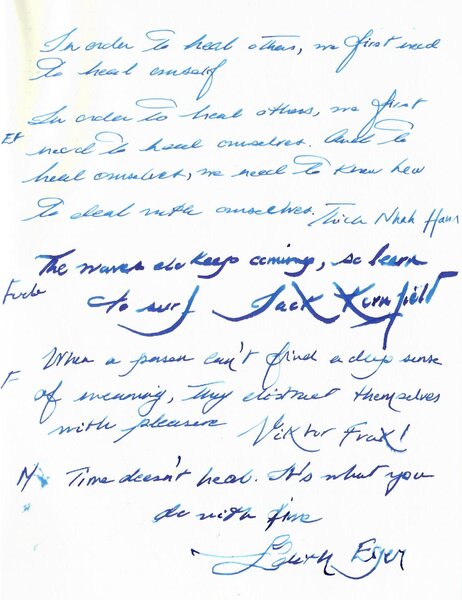 In order to heal others, we first need
to heal ourself
In order to heal others, we first
EF need to heal ourselves. And to
heal ourselves, we need to know how
to deal with ourselves. Thich Nhah Hanh
The waves do keep coming, so learn
to surf Jack Kornfield
When a person can't find a deep sense
F of meaning, they distract themselves
with pleasure Viktor Frankl
M Time doesn't heal. It's what you
do with time
Edith Eger